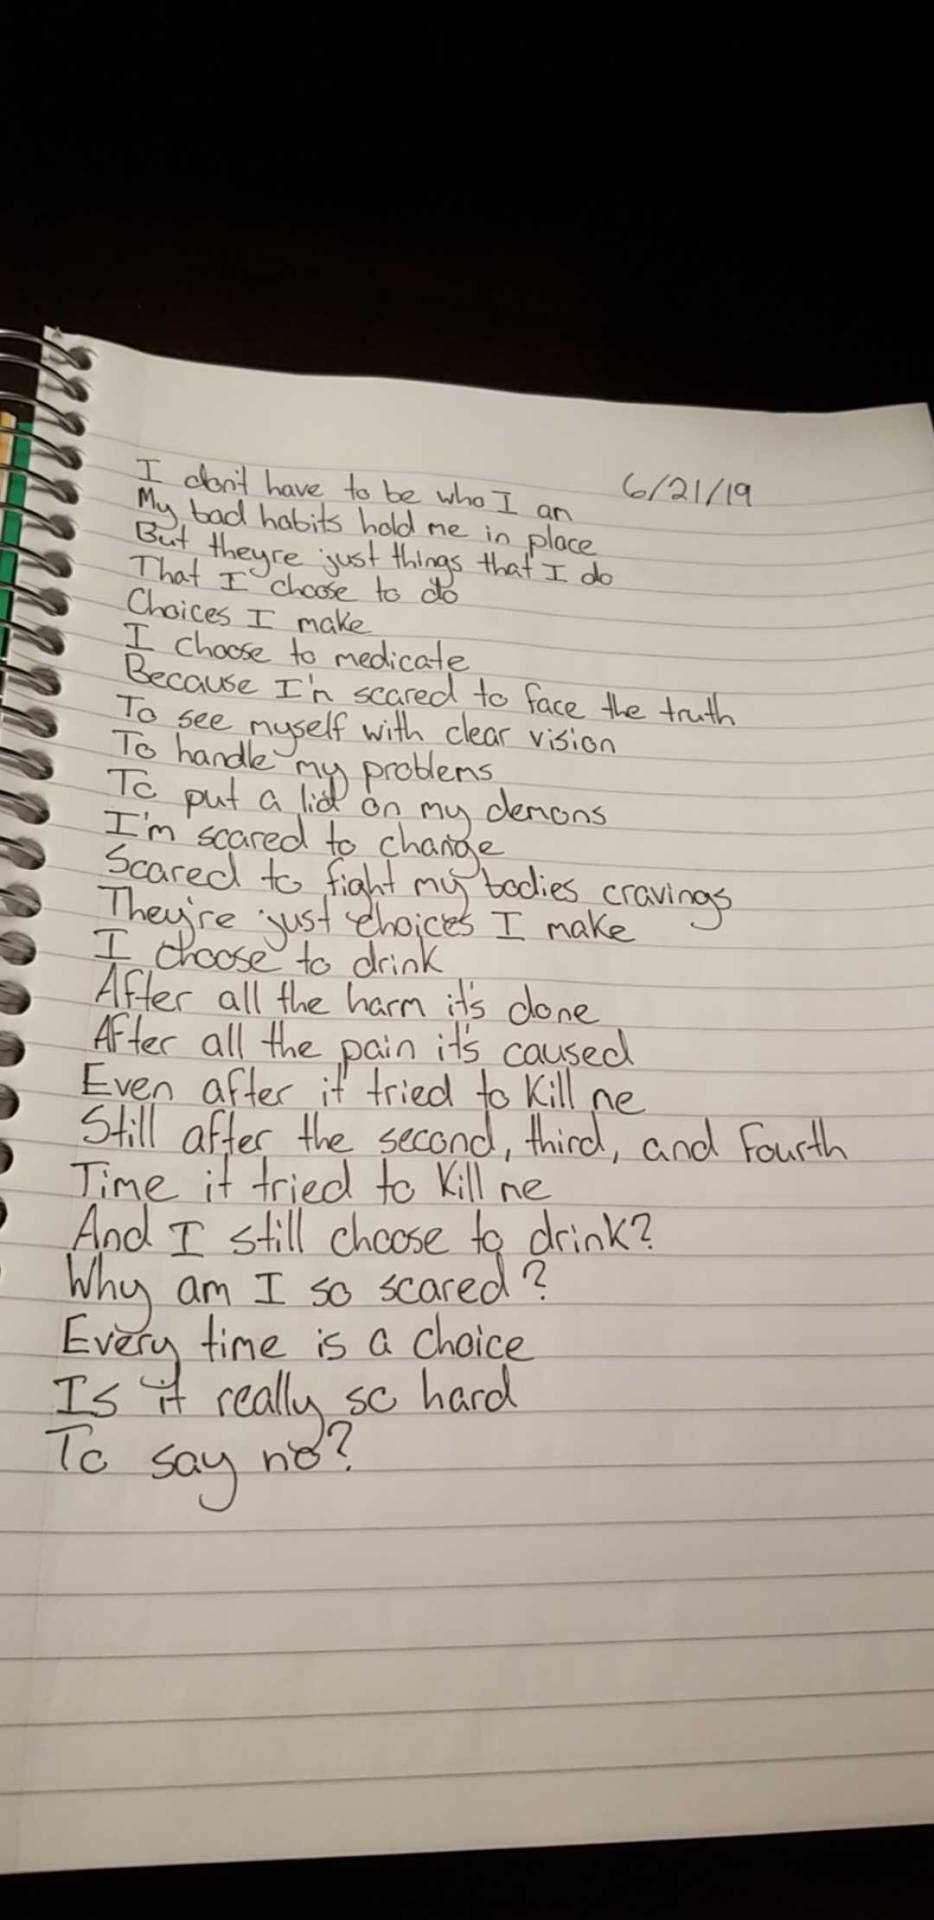 6/21/19
I don't have to be who I am
My bad habits hold me in place
But theyre just things that I do
That I choose to do
Choices I make
I choose to medicate
Because I'm scared to face the truth
To see myself with clear vision
To handle my problems
To put a lid on my demons
I'm scared to change
Scared to fight my bodies cravings
They're just choices I make
I choose to drink
After all the harm it's done
After all the pain it's caused
Even after it tried to kill me
Still after the second, third, and fourth
Time it tried to kill me
And I still choose to drink?
Why am I so scared?
Every time is a choice
Is it really so hard
To say no?